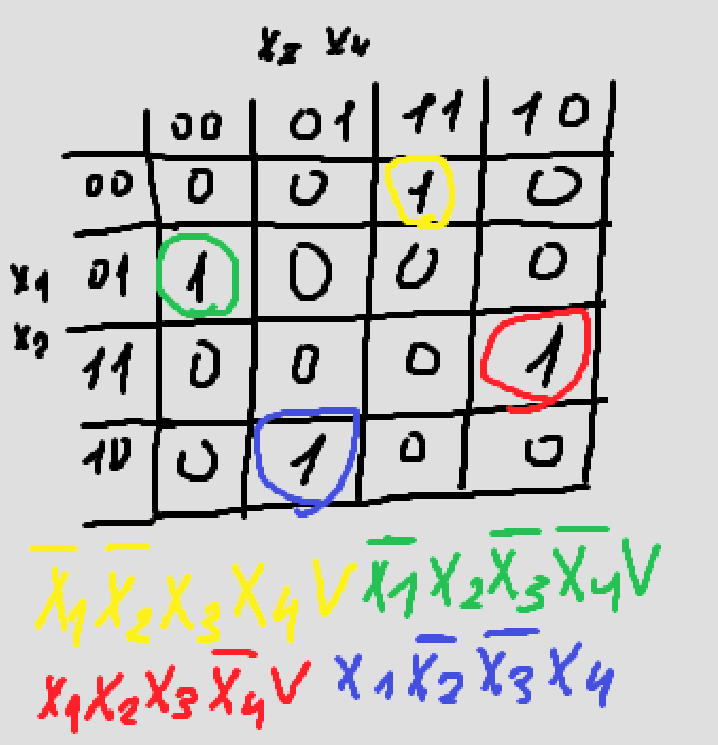 x₃ x₄
00 01 11 10
00 0 0 1 0
x₁ 01 1 0 0 0
x₂ 11 0 0 0 1
10 0 1 0 0
x̅₁ x̅₂ x₃ x₄ V x̅₁ x₂ x̅₃ x̅₄ V
x₁ x₂ x₃ x̅₄ V x₁ x̅₂ x̅₃ x₄